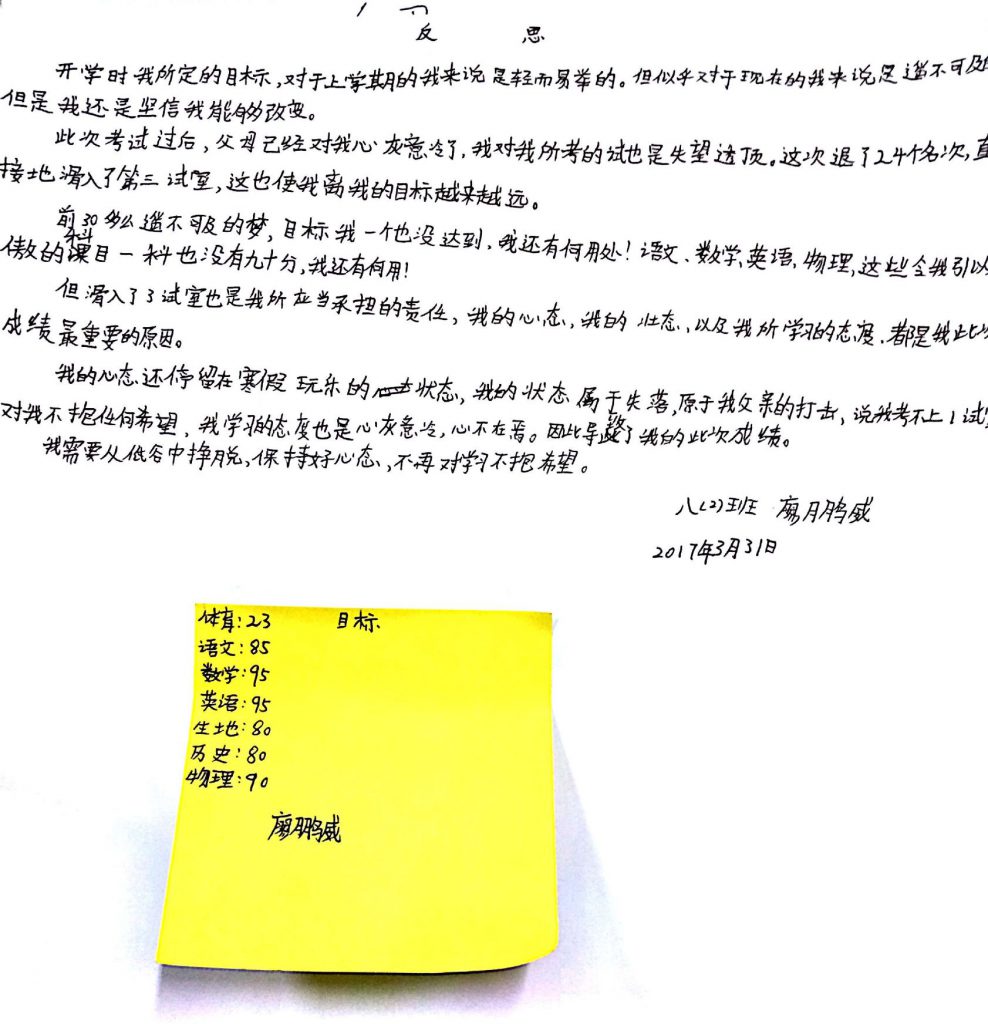 反 思
开学时我所定的目标,对于上学期的我来说是轻而易举的。但似乎对于现在的我来说是遥不可及
但是我还是坚信我能够改变。
此次考试过后,父母已经对我心灰意冷了,我对我所考的试也是失望透顶。这次退了24个名次,直
接地滑入了第三试室,这也使我离我的目标越来越远。
前30多么遥不可及的梦,目标我一个也没达到,我还有何用处!语文、数学、英语、物理,这些令我引以
傲的科目一科也没有九十分,我还有何用!
但滑入了3试室也是我所应当承担的责任,我的心态,我的壮态,以及我所学习的态度,都是我此次
成绩最重要的原因。
我的心态还停留在寒假玩乐的状态,我的状态属于失落,原于我父亲的打击,说我考不上1试室
对我不抱任何希望,我学习的态度也是心灰意冷,心不在焉。因此导致了我的此次成绩。
我需要从低谷中挣脱,保持好心态,不再对学习不抱希望。
八(2)班 廖鹏威
2017年3月31日
体育:23 目标
语文:85
数学:95
英语:95
生地:80
历史:80
物理:90
廖鹏威